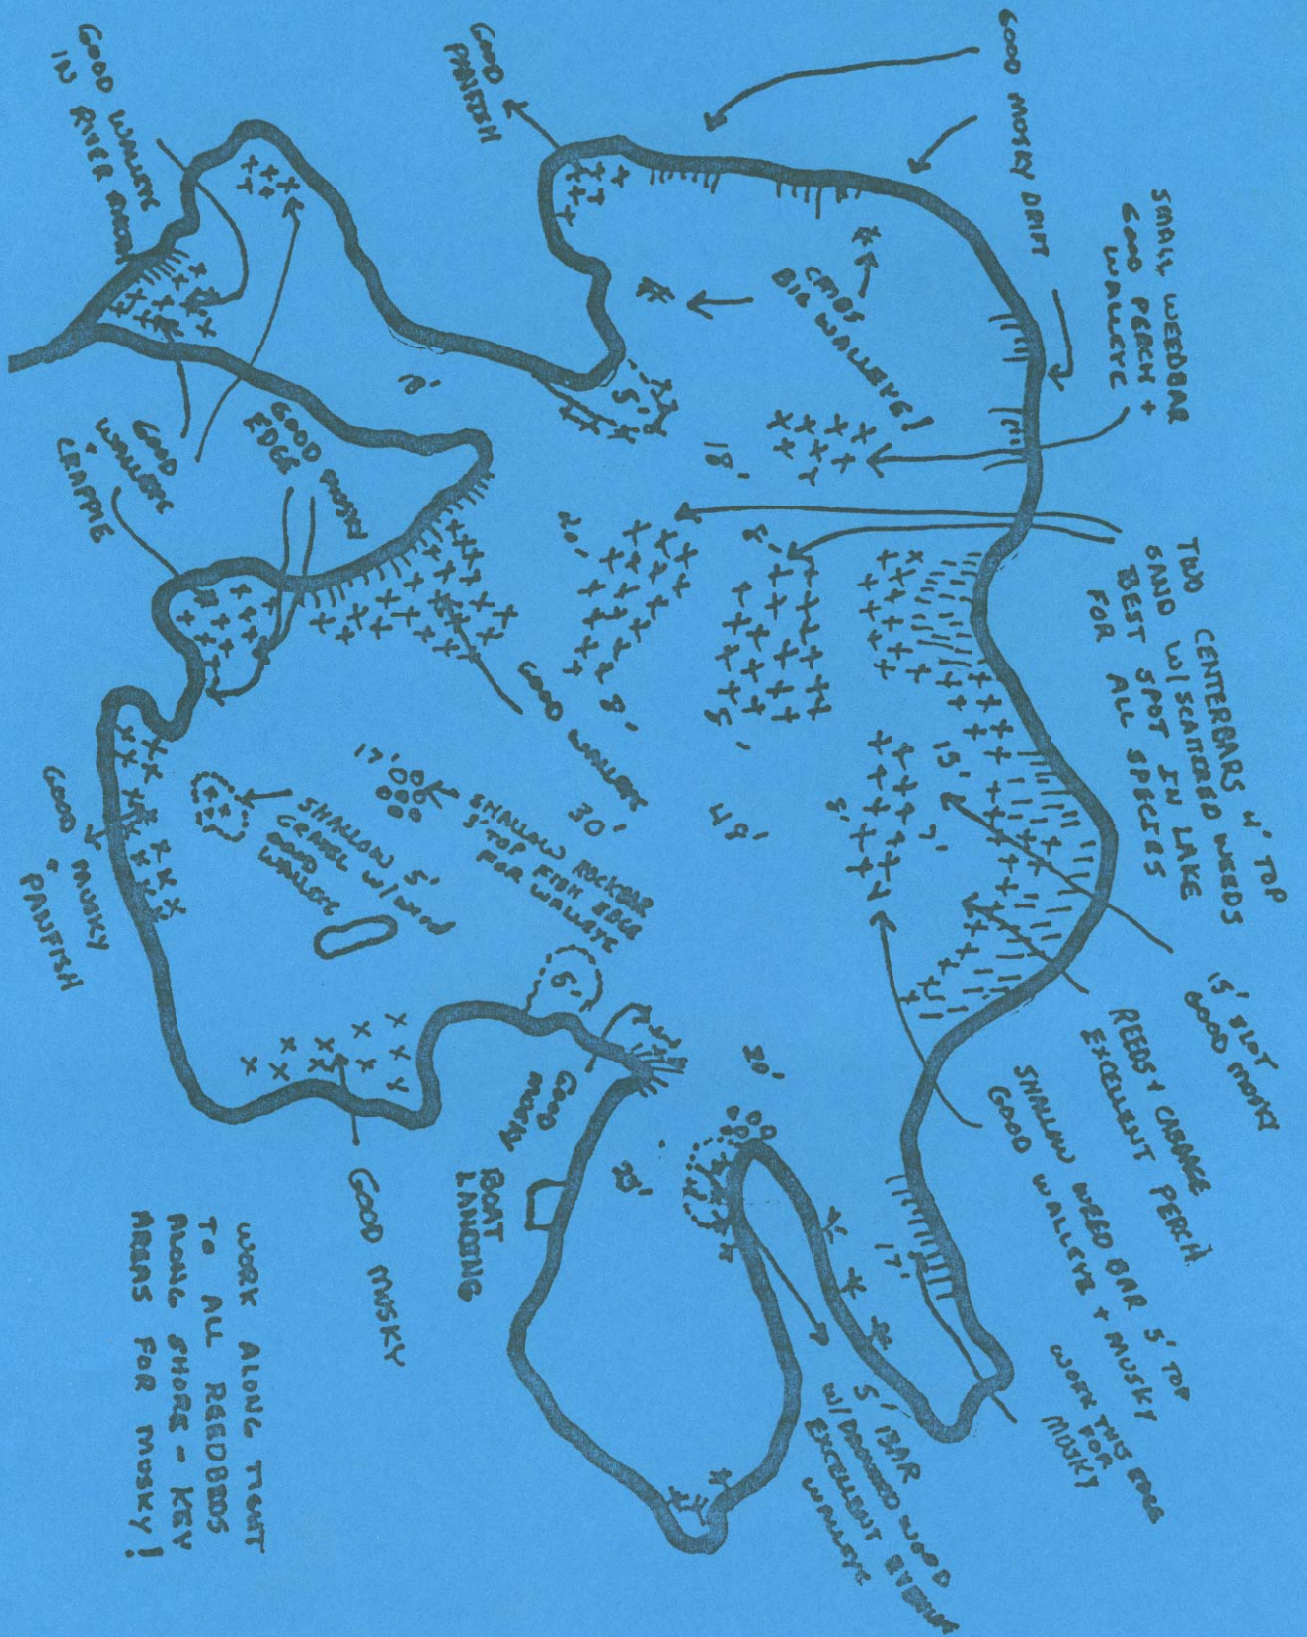 GOOD MUSKY DRIFT
SMALL WEEDBAR
GOOD PERCH +
WALLEYE
TWO CENTERBARS 4' TOP
SAND W/ SCATTERED WEEDS
BEST SPOT IN LAKE
FOR ALL SPECIES
15' SLOT
GOOD MUSKY
REEDS + CABBAGE
EXCELLENT PERCH
SHALLOW WEED BAR 5' TOP
GOOD WALLEYE + MUSKY
WORK THIS EDGE
FOR
MUSKY
5' BAR
W/ DROWNED WOOD
EXCELLENT EVENING
WALLEYE
GOOD
PANFISH
CRIBS
BIG WALLEYE!
5'
18'
8'
20'
8'
8'
48'
15'
7'
8'
30'
17'
30'
17'
25'
6'
18'
GOOD WALLEYE
IN RIVER
GOOD
WALLEYE
+
CRAPPIE
GOOD MUSKY
EDGE
GOOD WALLEYE
SHALLOW ROCKBAR
5' TOP FISH EDGE
FOR WALLEYE
SHALLOW 5'
GRAVEL W/ WEED
GOOD
WALLEYE
GOOD MUSKY
+
PANFISH
GOOD
MUSKY
BOAT
LANDING
GOOD MUSKY
WORK ALONG TIGHT
TO ALL REEDBEDS
ALONG SHORE - KEY
AREAS FOR MUSKY!